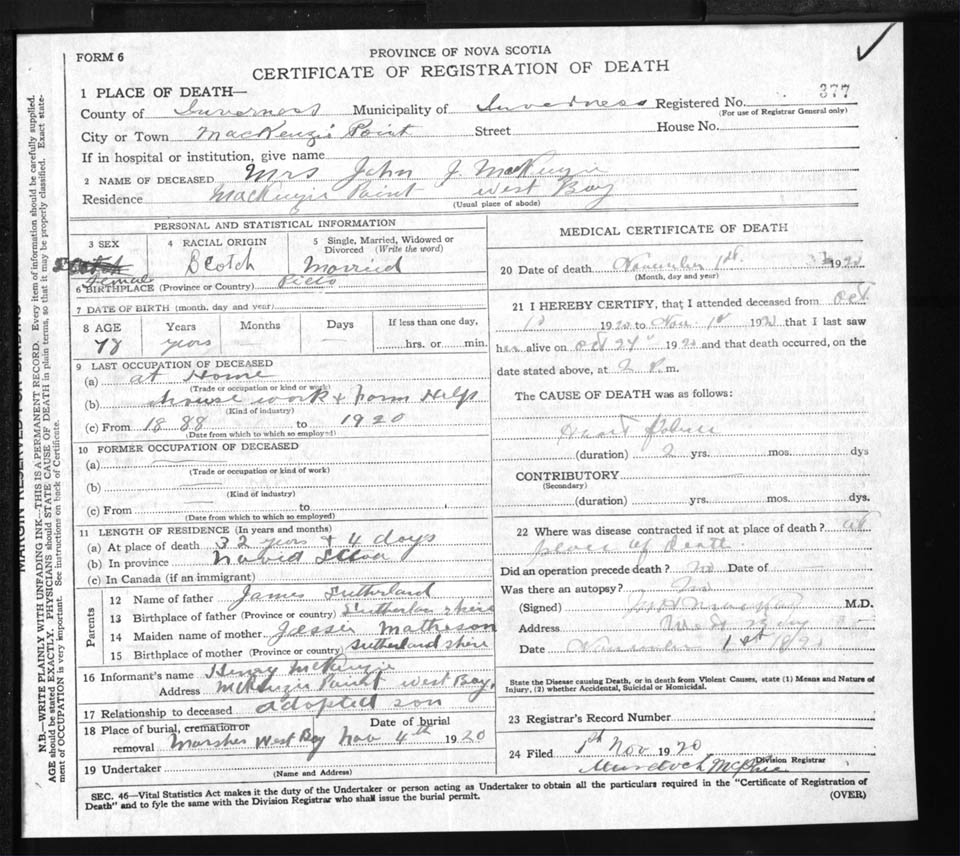 FORM 6
PROVINCE OF NOVA SCOTIA
CERTIFICATE OF REGISTRATION OF DEATH
1 PLACE OF DEATH—
County of Inverness Municipality of Inverness Registered No. 377
(For use of Registrar General only)
City or Town MacKenzie Point Street House No.
If in hospital or institution, give name
2 NAME OF DECEASED Mrs John J. MacKenzie
Residence MacKenzie Point West Bay
(Usual place of abode)
PERSONAL AND STATISTICAL INFORMATION
3 SEX
Scotch
Female
4 RACIAL ORIGIN
Scotch
5 Single, Married, Widowed or
Divorced (Write the word)
Married
6 BIRTHPLACE (Province or Country) Pictou
7 DATE OF BIRTH (month, day and year)
8 AGE Years Months Days If less than one day,
78 years hrs. or min.
9 LAST OCCUPATION OF DECEASED
(a) at Home
(Trade or occupation or kind or work)
(b) house work & Farm Help
(Kind of industry)
(c) From 1888 to 1920
(Date from which to which so employed)
10 FORMER OCCUPATION OF DECEASED
(a)
(Trade or occupation or kind of work)
(b)
(Kind of industry)
(c) From to
(Date from which to which so employed)
11 LENGTH OF RESIDENCE (In years and months)
(a) At place of death 32 years & 4 days
(b) In province
(c) In Canada (if an immigrant)
Parents
12 Name of father James Sutherland
13 Birthplace of father (Province or country) Sutherlan shire
14 Maiden name of mother Jessie Matheson
15 Birthplace of mother (Province or country) Sutherland shire
16 Informant's name Henry McKenzie
Address McKenzie Point West Bay,
17 Relationship to deceased adopted son
18 Place of burial, cremation or Date of burial
removal Marshes West Bay Nov 4th 1920
19 Undertaker
(Name and Address)
MEDICAL CERTIFICATE OF DEATH
20 Date of death November 1st 1920
(Month, day and year)
21 I HEREBY CERTIFY, that I attended deceased from Oct
1st 1920 to Nov 1st 1920 that I last saw
her alive on Oct 27th 1920 and that death occurred, on the
date stated above, at 2 P.m.
The CAUSE OF DEATH was as follows:
Heart failure
(duration) 2 yrs. mos. dys
CONTRIBUTORY
(Secondary)
(duration) yrs. mos. dys.
22 Where was disease contracted if not at place of death? at
place of Death
Did an operation precede death? no Date of
Was there an autopsy? no
(Signed) M.D.
Address West Bay
Date November 1st 1920
State the Disease causing Death, or in death from Violent Causes, state (1) Means and Nature of
Injury, (2) whether Accidental, Suicidal or Homicidal.
23 Registrar's Record Number
24 Filed 5th Nov 1920
Murdoch
Division Registrar
SEC. 46—Vital Statistics Act makes it the duty of the Undertaker or person acting as Undertaker to obtain all the particulars required in the "Certificate of Registration of
Death" and to fyle the same with the Division Registrar who shall issue the burial permit.
(OVER)
MARGIN RESERVED FOR BINDING
N.B.—WRITE PLAINLY WITH UNFADING INK—THIS IS A PERMANENT RECORD. Every item of information should be carefully supplied.
AGE should be stated EXACTLY. PHYSICIANS should STATE CAUSE OF DEATH in plain terms, so that it may be properly classified. Exact state-
ment of OCCUPATION is very important. See instructions on back of Certificate.